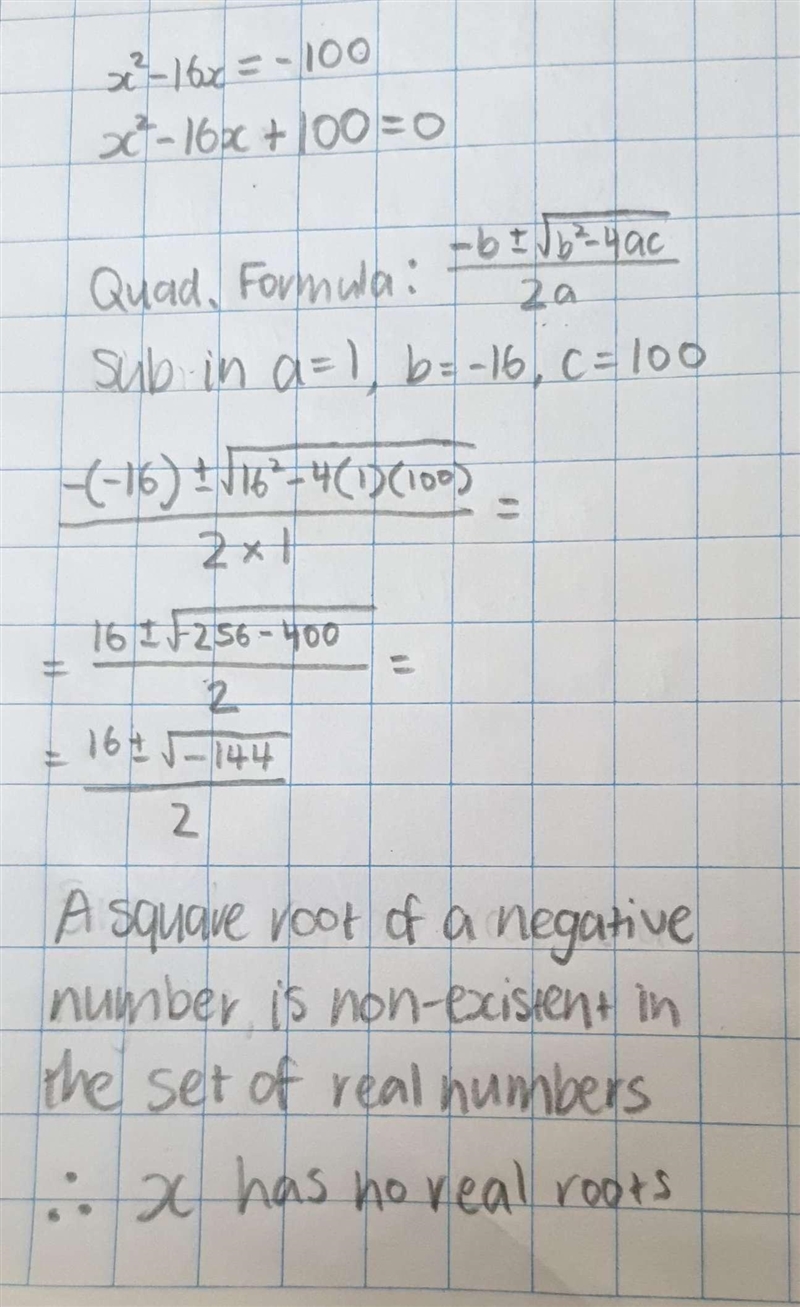 x²-16x=-100
x²-16x+100=0
Quad. Formula: (-b±√(b²-4ac))/(2a)
Sub in a=1, b=-16, c=100
(-(-16)±√(16²-4(1)(100)))/(2×1) =
= (16±√(256-400))/2 =
= (16±√(-144))/2
A square root of a negative
number is non-existent in
the set of real numbers
∴ x has no real roots